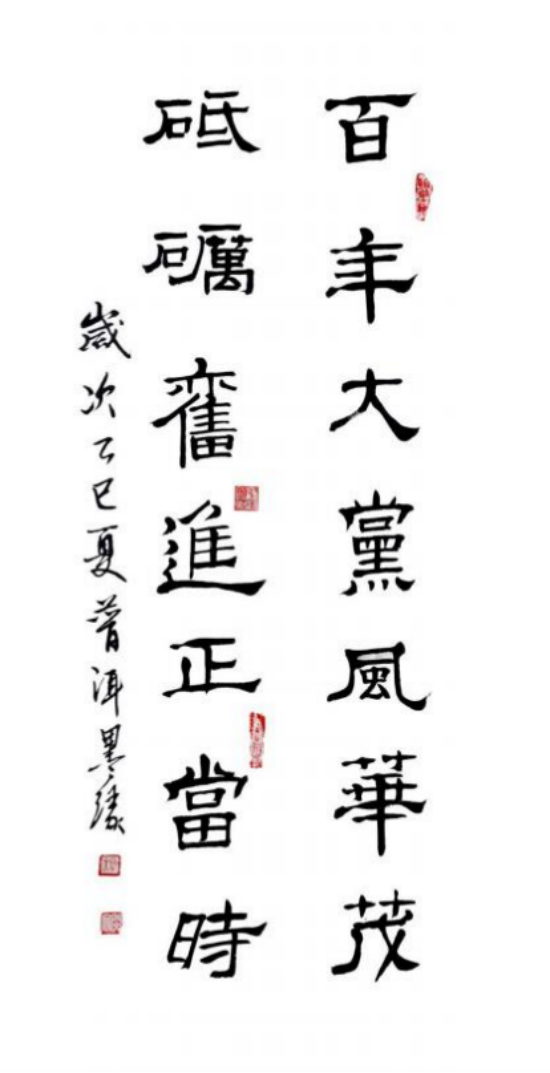 百年大黨風華茂
砥礪奮進正當時
歲次乙巳夏普洱墨緣